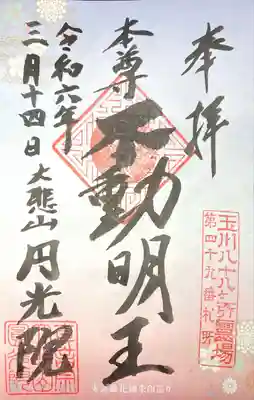 奉拝
玉川八十八ヶ所霊場
第四十九番札所
本尊
不動明王
令和六年
三月十四日
大悲山 円光院